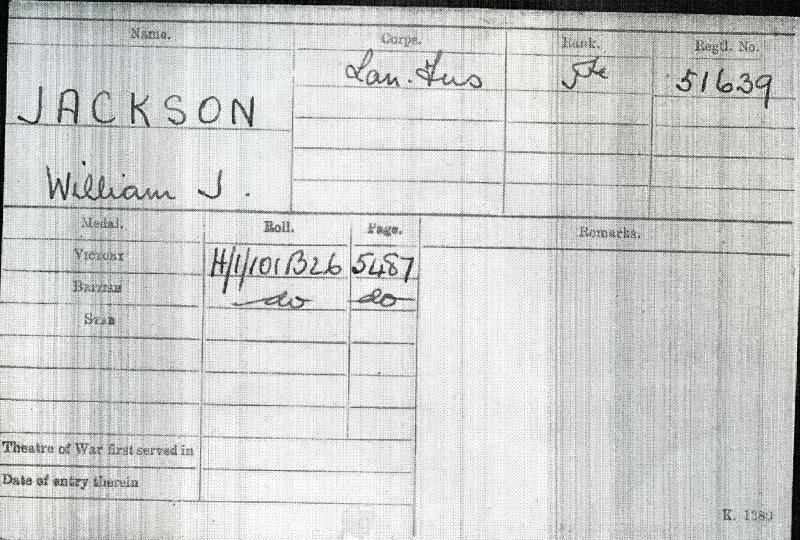 Name. Corps. Rank. Regtl. No.
JACKSON Lan. Fus Pte 51639
William J.
Medal. Roll. Page. Remarks.
Victory H/1/101B26 5487
British do do
Star
Theatre of War first served in
Date of entry therein
K. 1380